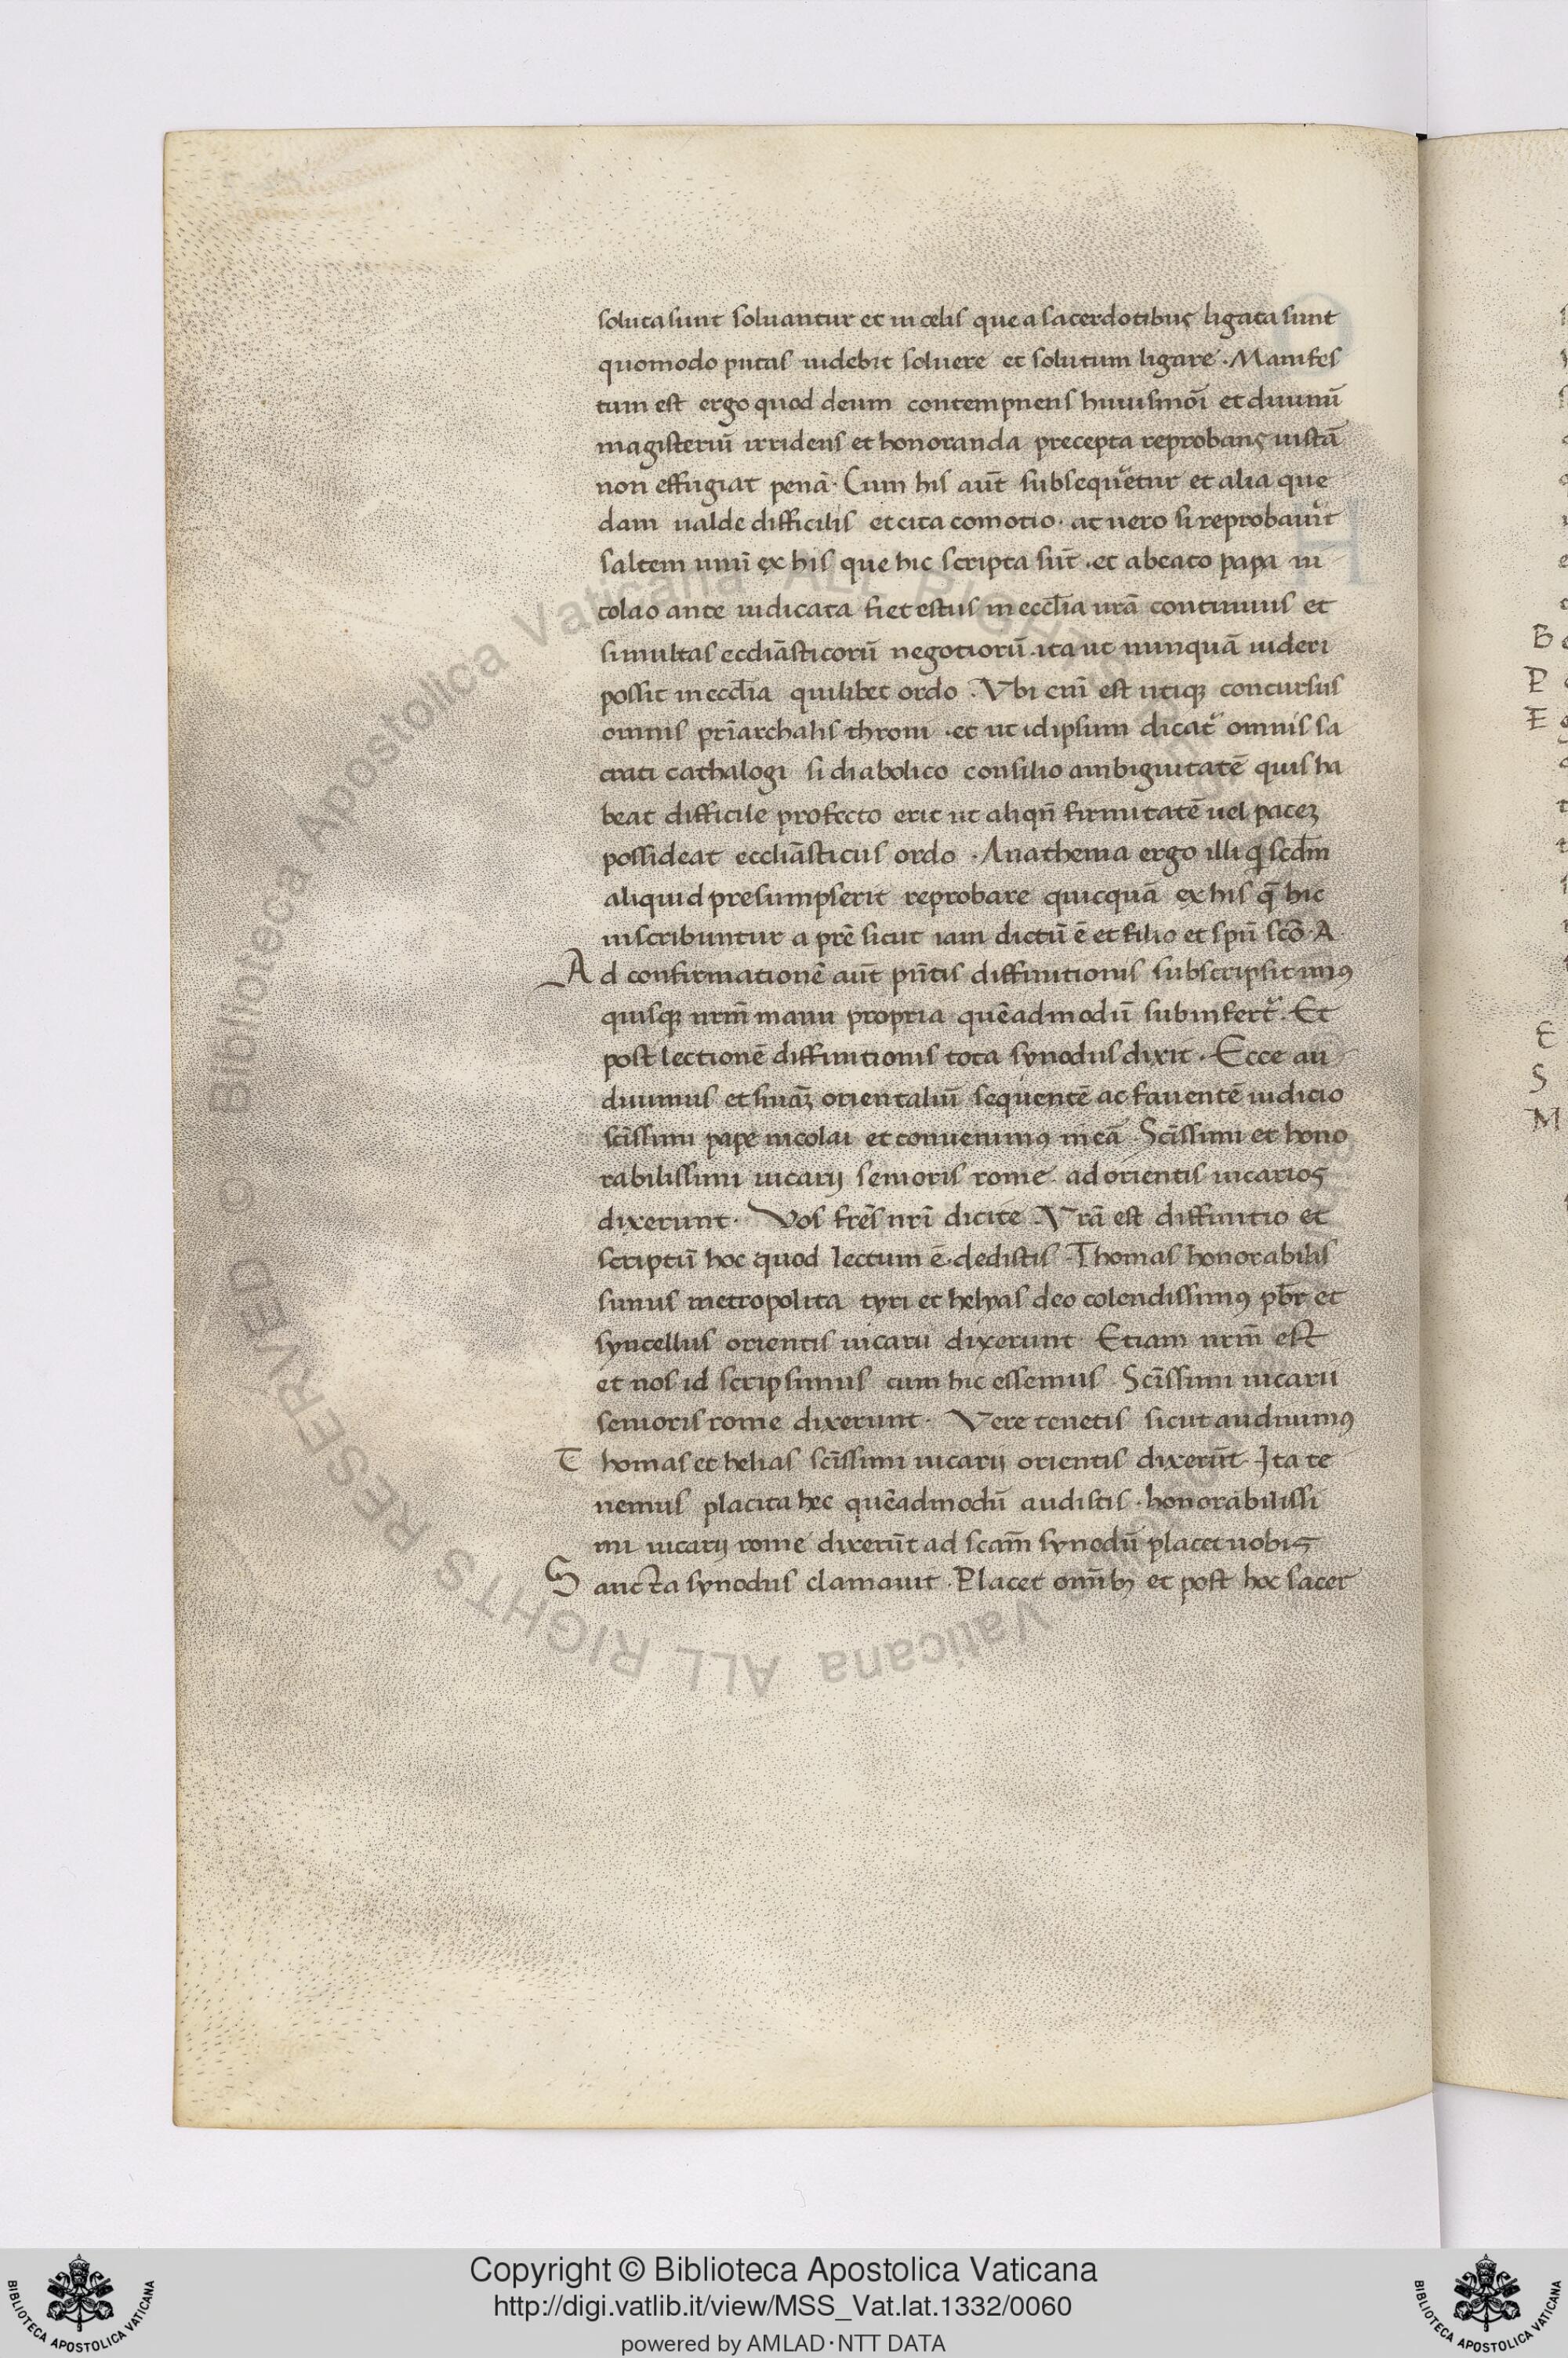 soluta sunt soluantur et in celis que a sacerdotibus ligata sunt
quomodo putas uidebit soluere et solutum ligare . Manifes
tum est ergo quod deum contempnens huiusmōi et diuinū
magisteriū irridens et honoranda precepta reprobans iustā
non effugiat penā . Cum his aūt subsequetur et alia que
dam ualde difficilis et cita comotio . at uero si reprobauit
saltem unū ex his que hic scripta sūt . et a beato papa ni
colao ante iudicata fiet estus in eccl̄ia urā continuus et
simultas eccl̄iāsticorū negotiorū . ita ut nunquā uideri
possit in eccl̄ia quilibet ordo . Vbi eni est utiqꝫ concursus
omnis pr̄iarchalis throni . et ut idipsum dicat omnis sa
crati cathalogi si diabolico consilio ambiguitatē quis ha
beat difficile profecto erit ut aliqn̄ firmitatē uel paceꝫ
possideat eccl̄iāsticus ordo . Anathema ergo illi q scdm̄
aliquid presumpserit reprobare quicquā ex his q̄ hic
inscribuntur a prē sicut iam dictū ē et filio et spū scō . A
Ad confirmationē aūt pn̄tis diffinitionis subscripsit unusꝰ
quisqꝫ nrm̄ manu propria quēadmodū subinfert . Et
post lectionē diffinitionis tota synodus dixit . Ecce au
diuimus et sn̄iaꝫ orientaliū sequentē ac fauentē iudicio
scīssimi pape nicolai et conuenimꝰ in eā . Scīssimi et hono
rabilissimi uicarij senioris rome ad orientis uicarios
dixerunt . Vos frēs nrī dicite . Vrā est diffinitio et
scriptū hoc quod lectum ē . dedistis . Thomas honorabilis
simus metropolita tyri et helyas deo colendissimꝰ pbr̄ et
syncellus orientis uicarii dixerunt Etiam nrm̄ est
et nos id scripsimus cum hic essemus . Scīssimi uicarii
senioris rome dixerunt . Vere tenetis sicut audiuimꝰ
Thomas et helias scīssimi uicarij orientis dixerūt . Ita te
nemus placita hec quēadmodū audistis . honorabilissi
mi uicarij rome dixerūt ad scam̄ synodū placet uobis
Sancta synodus clamauit . Placet omībꝫ et post hoc sacer
B
P
E
E
S
M
© Biblioteca Apostolica Vaticana ALL RIGHTS RESERVED
Copyright © Biblioteca Apostolica Vaticana
http://digi.vatlib.it/view/MSS_Vat.lat.1332/0060
powered by AMLAD·NTT DATA
BIBLIOTECA APOSTOLICA VATICANA
BIBLIOTECA APOSTOLICA VATICANA